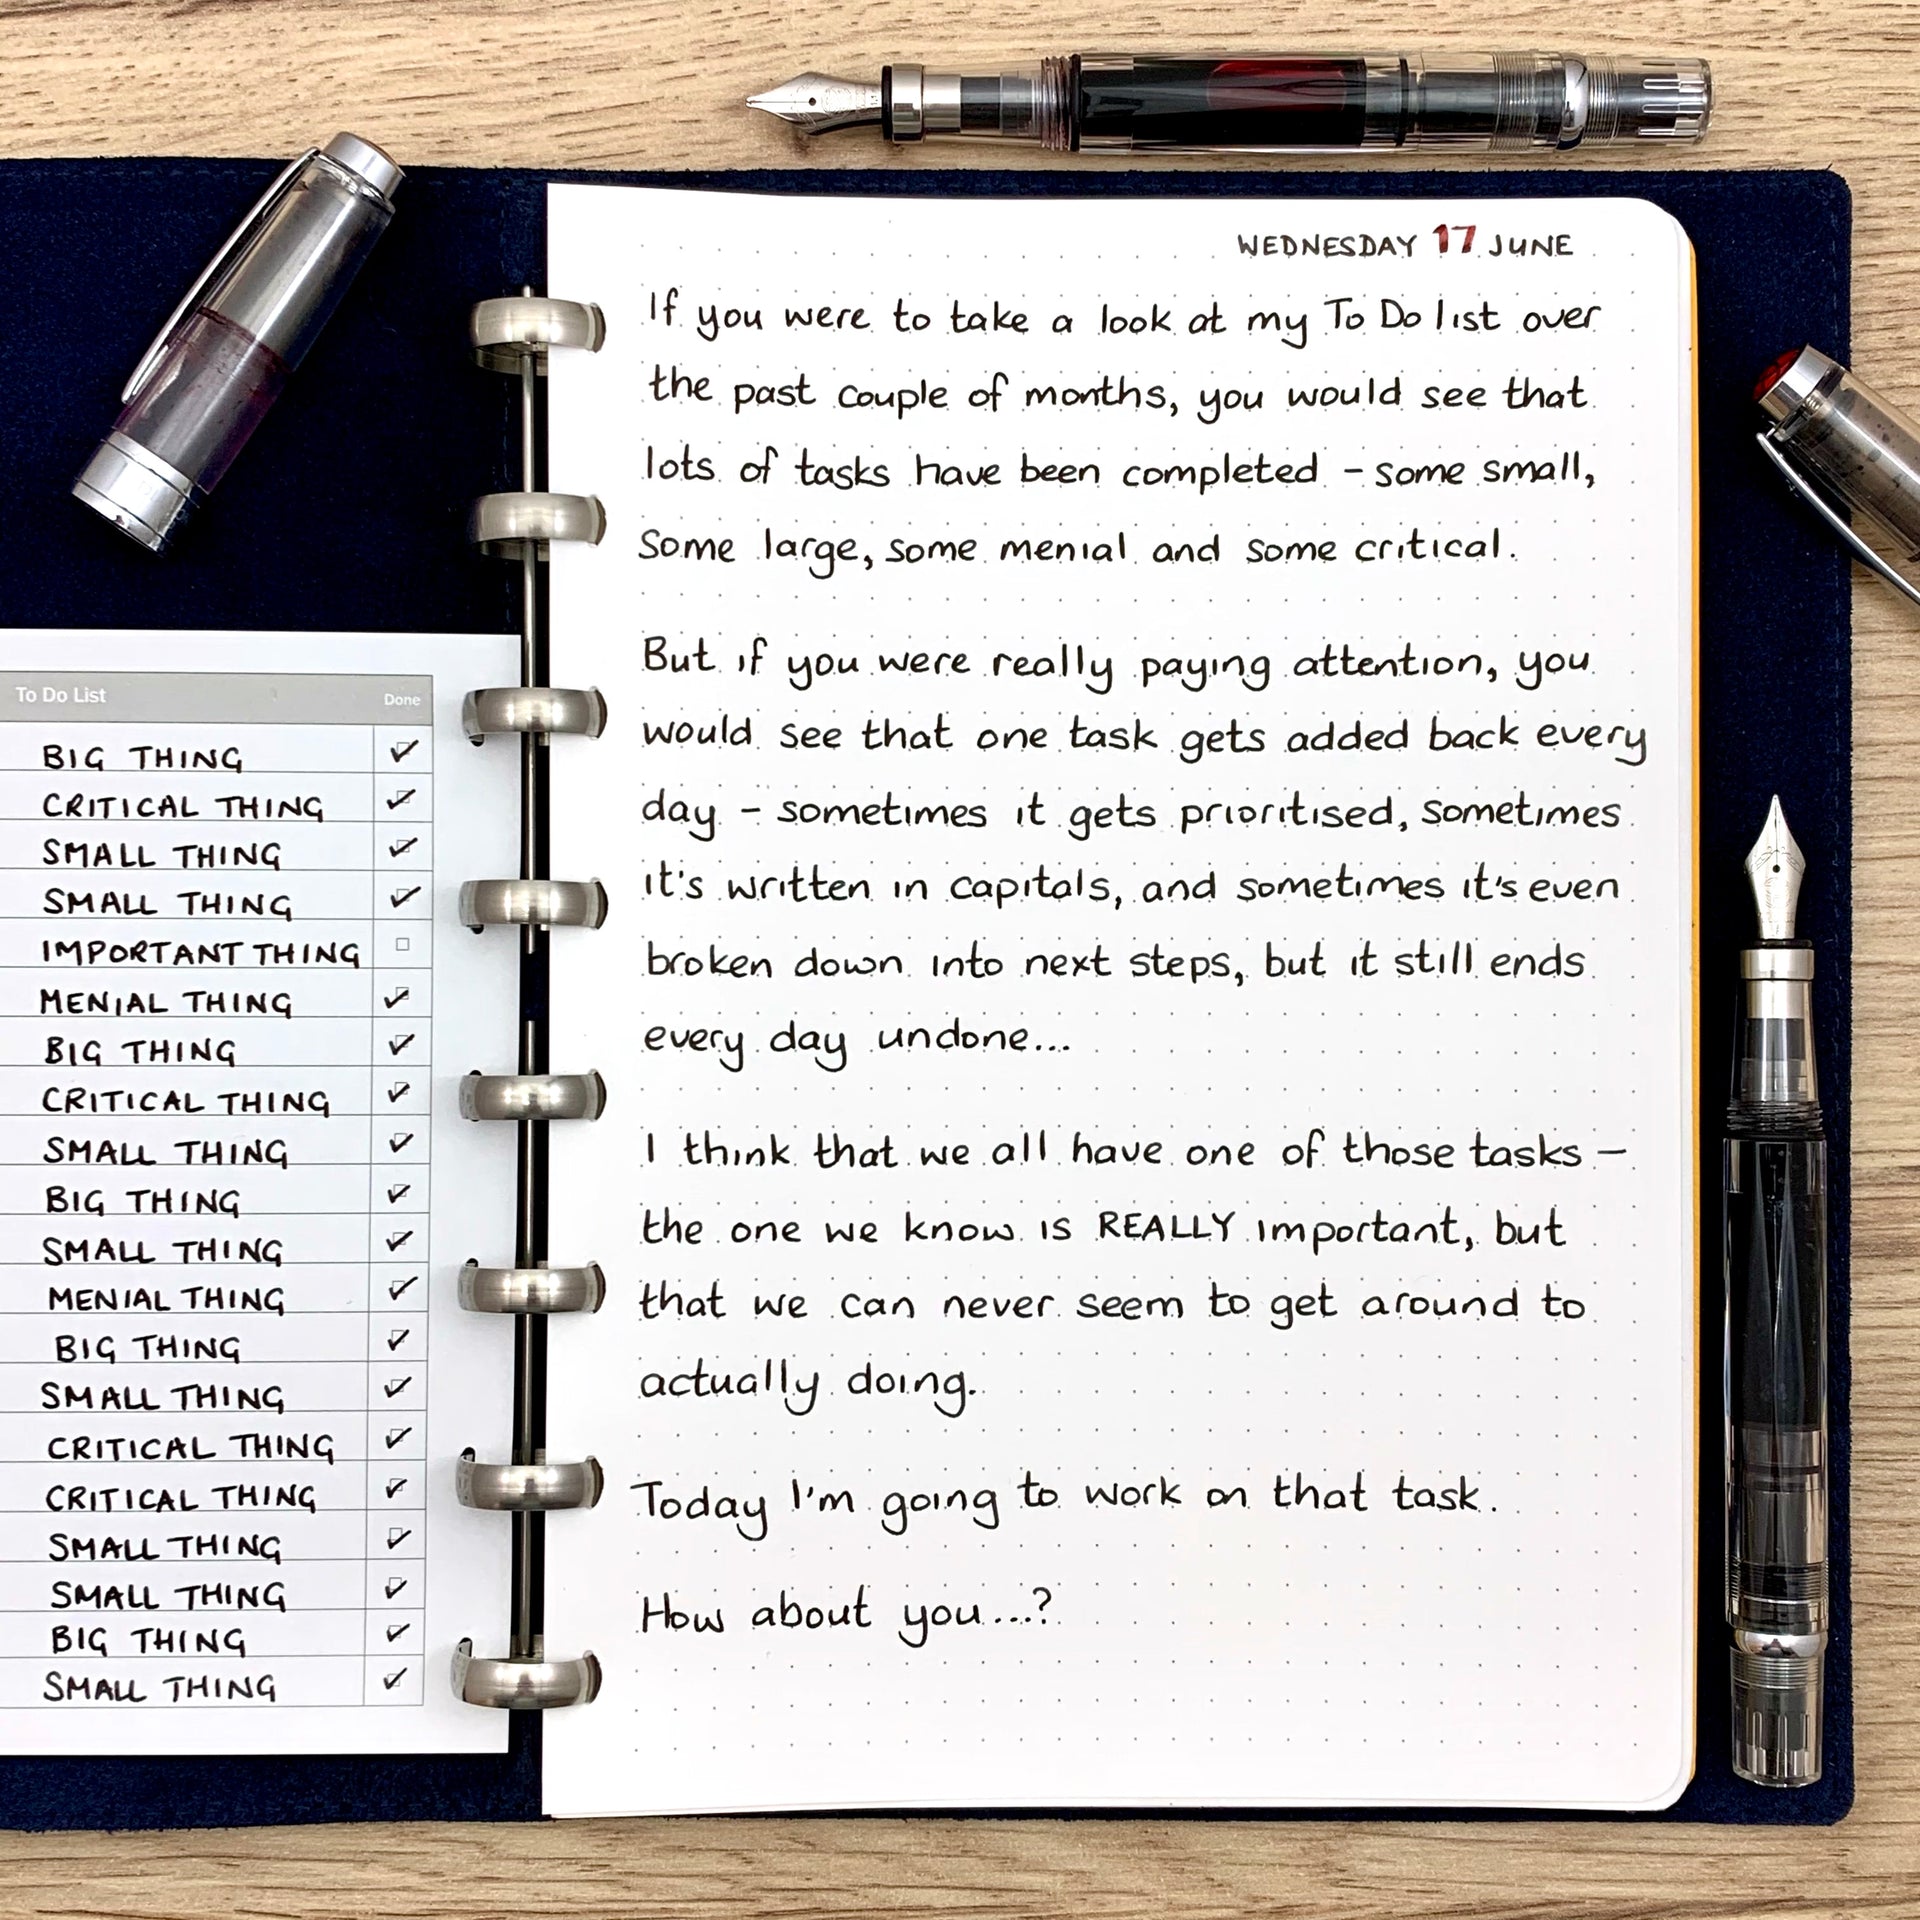 To Do List Done
BIG THING
CRITICAL THING
SMALL THING
SMALL THING
IMPORTANT THING
MENIAL THING
BIG THING
CRITICAL THING
SMALL THING
BIG THING
SMALL THING
MENIAL THING
BIG THING
SMALL THING
CRITICAL THING
CRITICAL THING
SMALL THING
SMALL THING
BIG THING
SMALL THING
WEDNESDAY 17 JUNE
If you were to take a look at my To Do list over
the past couple of months, you would see that
lots of tasks have been completed – some small,
some large, some menial and some critical.
But if you were really paying attention, you
would see that one task gets added back every
day – sometimes it gets prioritised, sometimes
it's written in capitals, and sometimes it's even
broken down into next steps, but it still ends
every day undone...
I think that we all have one of those tasks –
the one we know is REALLY important, but
that we can never seem to get around to
actually doing.
Today I'm going to work on that task.
How about you...?